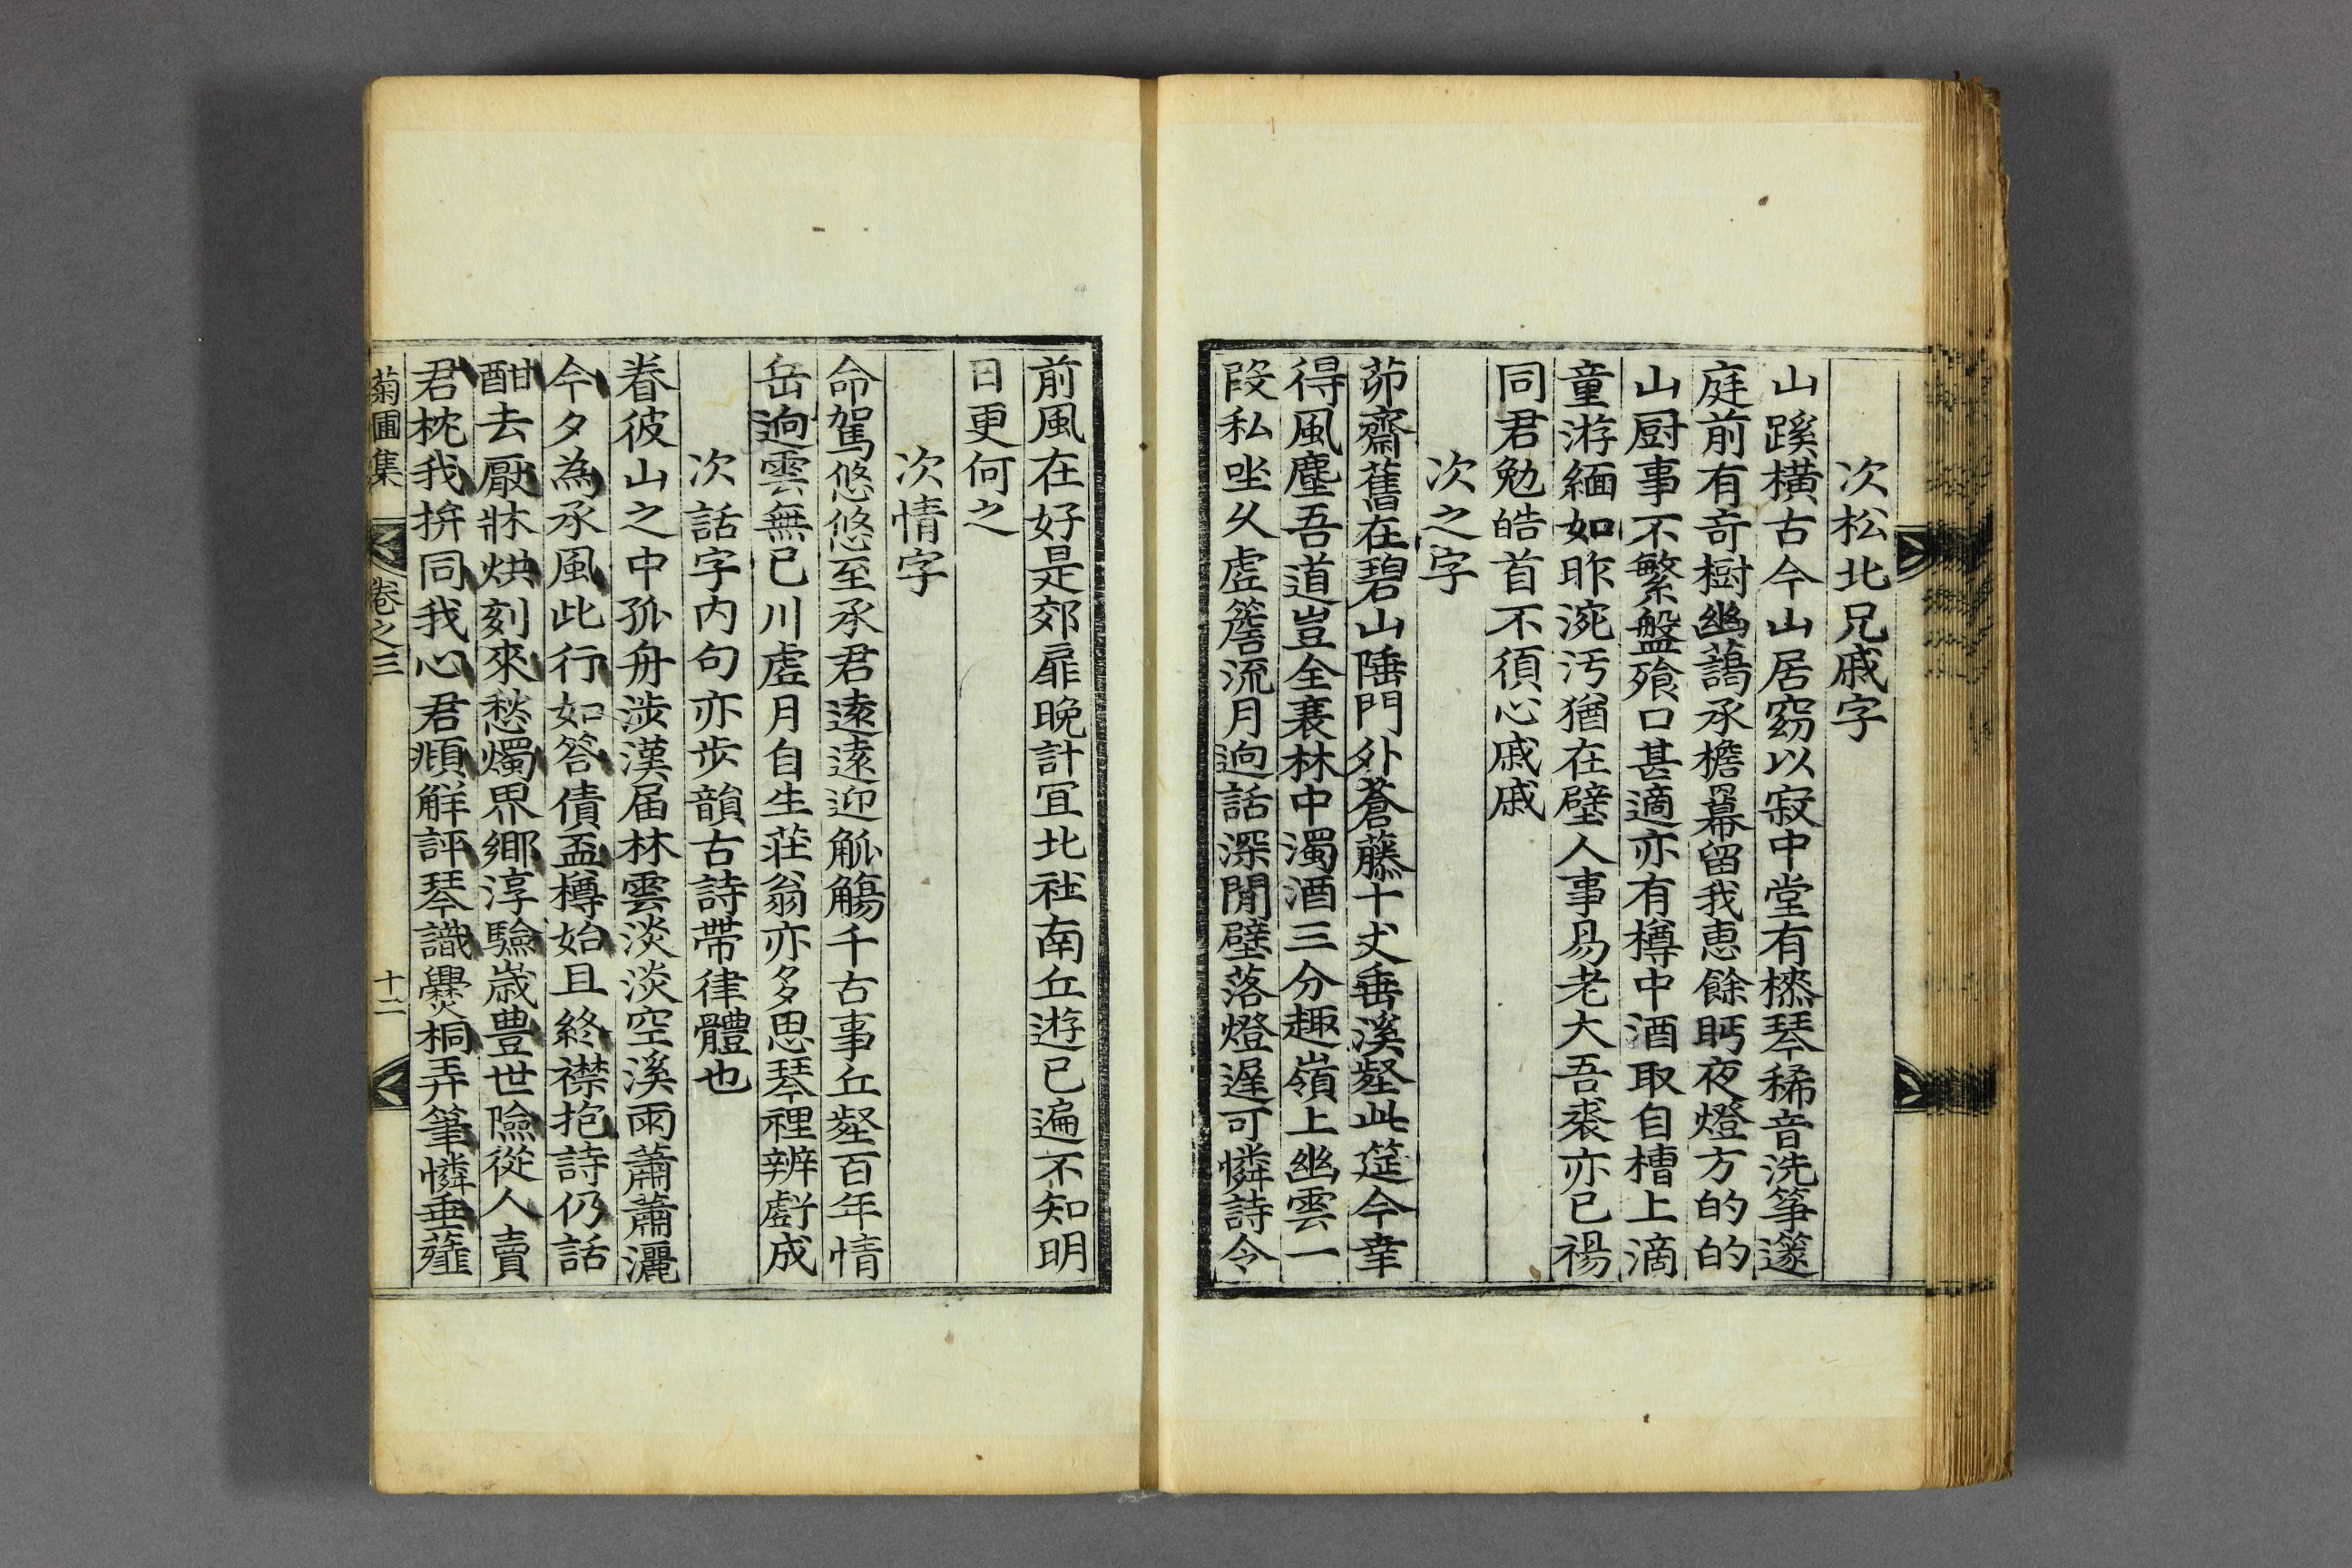 次松北兄戚字
山蹊橫古今山居窈以寂中堂有樣琴稀音洗筝篴
庭前有奇樹幽藹承檐冪留我惠餘眄夜燈方的的
山厨事不繁盤飱口甚適亦有樽中酒取自槽上滴
童游緬如昨涴汚猶在壁人事易老大吾裘亦已裼
同君勉皓首不須心戚戚
次之字
茆齋舊在碧山陲門外蒼藤十丈垂溪壑此筵今幸
得風塵吾道豈全衰林中濁酒三分趣嶺上幽雲一
段私坐久虛簷流月逈話深閒壁落燈遲可憐詩令
前風在好是郊扉晚計宜北社南丘遊已遍不知明
日更何之
次情字
命駕悠悠至承君遠遠迎觚觴千古事丘壑百年情
岳逈雲無已川虛月自生莊翁亦多思琴裡辨虧成
次話字内句亦步韻古詩帶律體也
眷彼山之中孤舟涉漢届林雲淡淡空溪雨蕭蕭灑
今夕為承風此行如答債盃樽始且終襟抱詩仍話
酣去厭牀烘刻來愁燭界鄉淳驗歲豊世險從人賣
君枕我拚同我心君頩觧評琴識爨桐弄筆憐垂薤
菊圃集
卷之三
十二